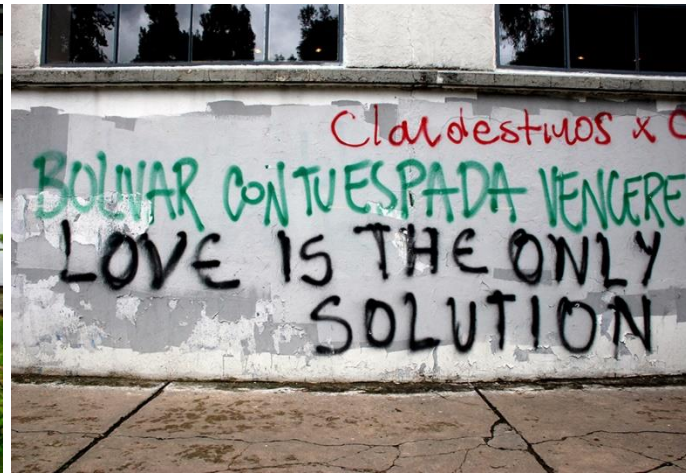 Clandestinos x
BOLIVAR CON TU ESPADA VENCERE
LOVE IS THE ONLY
SOLUTION